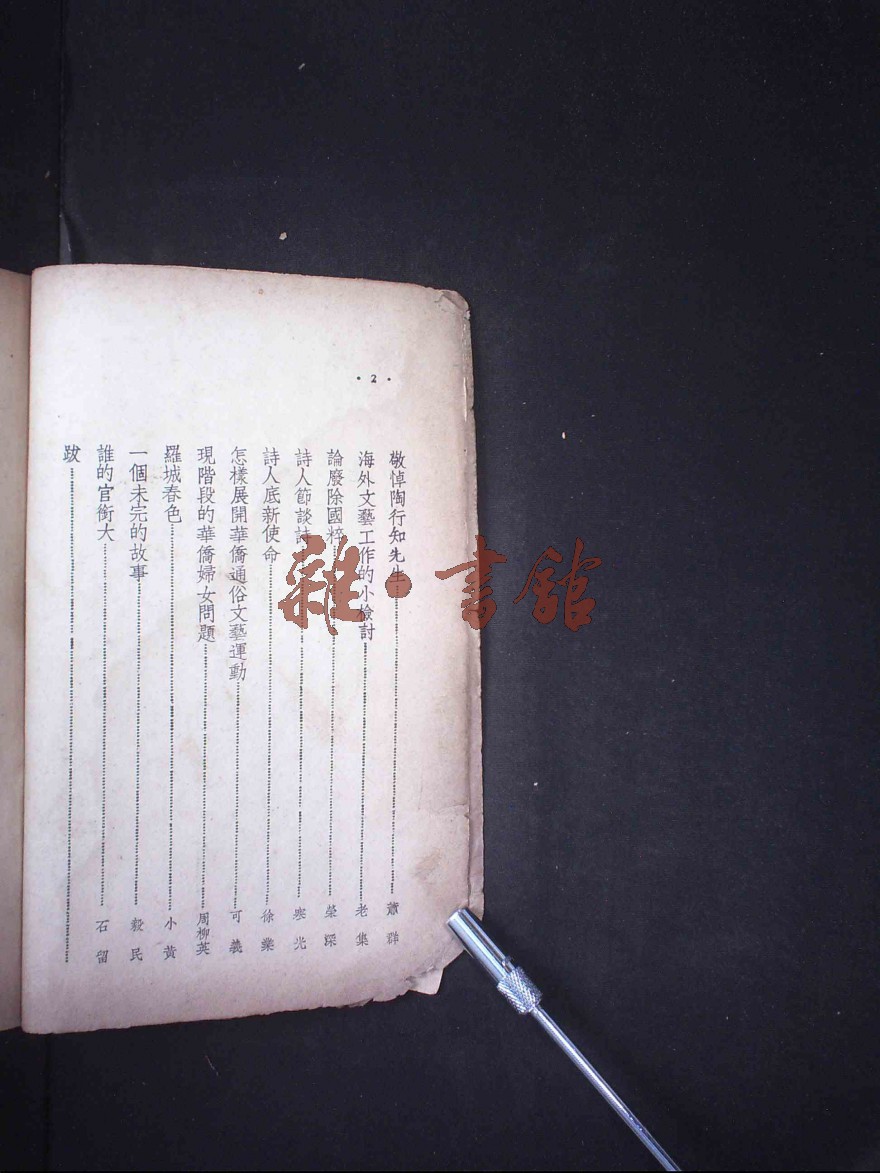 • 2 •
敬悼陶行知先生 蕭群
海外文藝工作的小檢討 老集
論廢除國粹 榮深
詩人節談詩 寒光
詩人底新使命 徐業
怎樣展開華僑通俗文藝運動 可義
現階段的華僑婦女問題 周柳英
羅城春色 小黃
一個未完的故事 毅民
誰的官銜大 石留
跋
雜·書舘